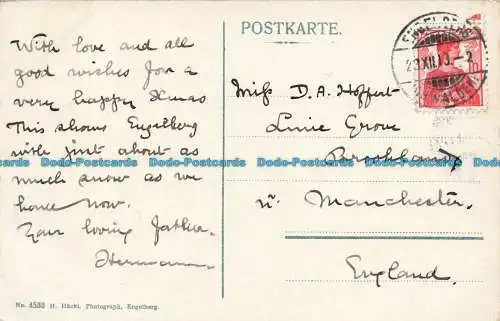 POSTKARTE.
With love and all
good wishes for a
very happy Xmas
This shows Engelberg
with just about as
much snow as we
have now.
Your loving father.
Hermann
Miss D. A. Hoffert
Lime Grove
Brooklands
nr. Manchester.
England.
ENGELBERG
XII
10
No. 4533 H. Häcki, Photograph, Engelberg.
Dodo-Postcards Dodo-Postcards Dodo-Postcards Dodo-Postcards Dodo-Postcards Dodo-Postcards